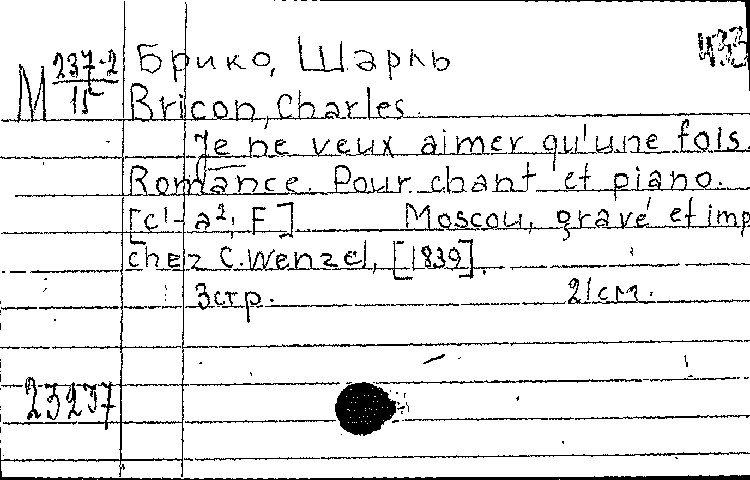 М 237-2/15 Брико, Шарль 433
Bricon, Charles
Je ne veux aimer qu'une fois.
Romance. Pour chant et piano.
[c¹-a²; F] Moscou, gravé et imp
chez C. Wenzel, [1839].
3 стр. 21 см.
23237